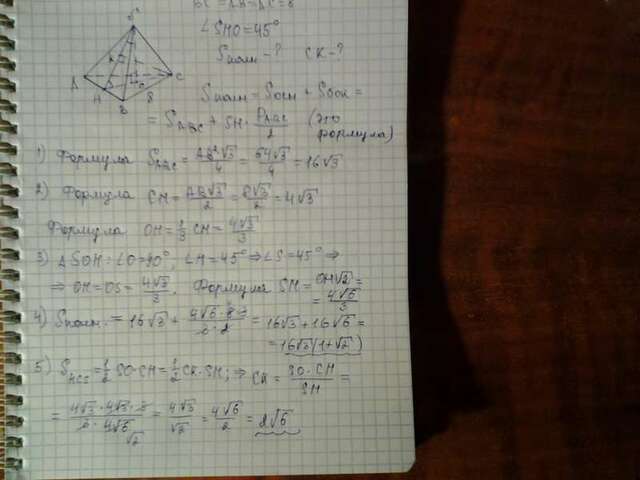 BC = AB = AC = 8
∠SHO = 45°
Sполн - ? CK - ?
S
A
H
B
C
O
K
8
Sполн = Sосн + Sбок =
= S△ABC + SH · P△ABC/2 (это формула)
1) Формула S△ABC = AB²√3/4 = 64√3/4 = 16√3
2) Формула CH = AB√3/2 = 8√3/2 = 4√3
Формула OH = 1/3 CH = 4√3/3
3) △SOH: ∠O = 90°, ∠H = 45° ⇒ ∠S = 45° ⇒
⇒ OH = OS = 4√3/3. Формула SH = OH√2 =
= 4√6/3
4) Sполн. = 16√3 + 4√6·8·3/3·2 = 16√3 + 16√6 =
= 16√3(1+√2)
5) SHCS = 1/2 SO·CH = 1/2 CK·SH; ⇒ CK = SO·CH/SH =
= 4√3·4√3·3/3·4√6 = 4√3/√2 = 4√6/2 = 2√6
√2